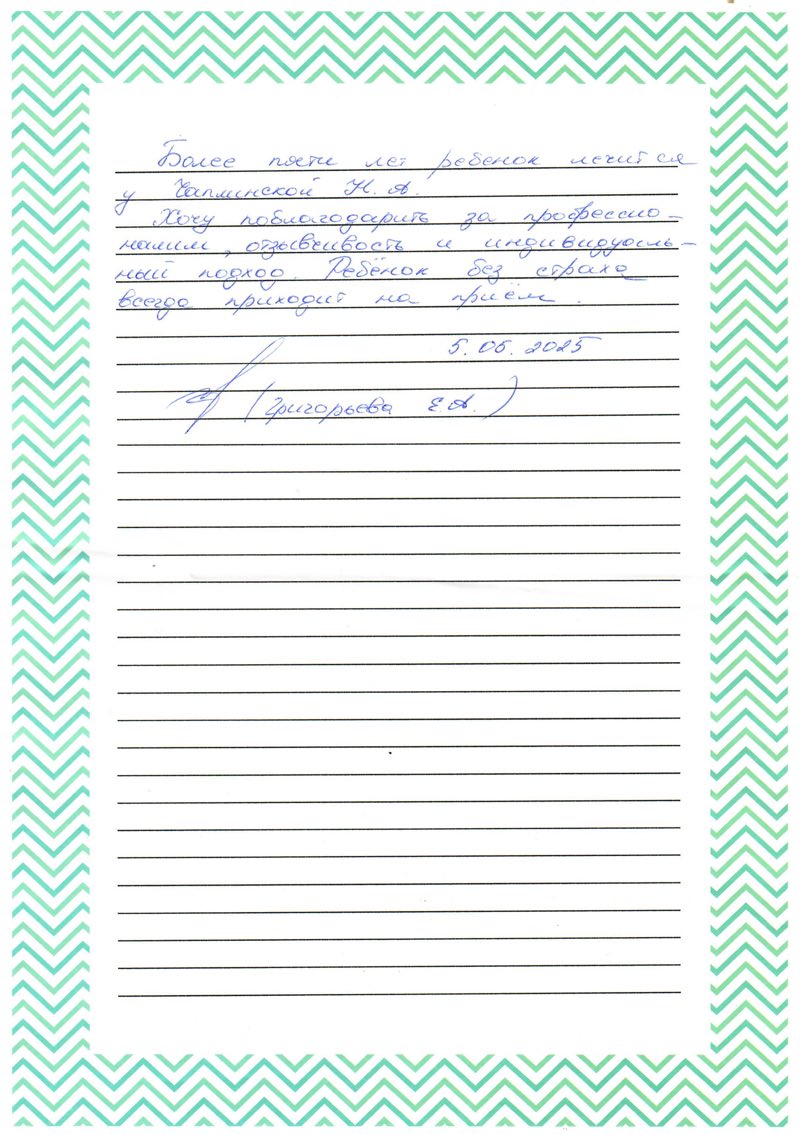 Более пяти лет ребенок лечится
у Чаплинской Н.А.
Хочу поблагодарить за профессио-
нализм, отзывчивость и индивидуаль-
ный подход. Ребёнок без страха
всегда приходит на приём.
5.05.2025
(Григорьева Е.А.)